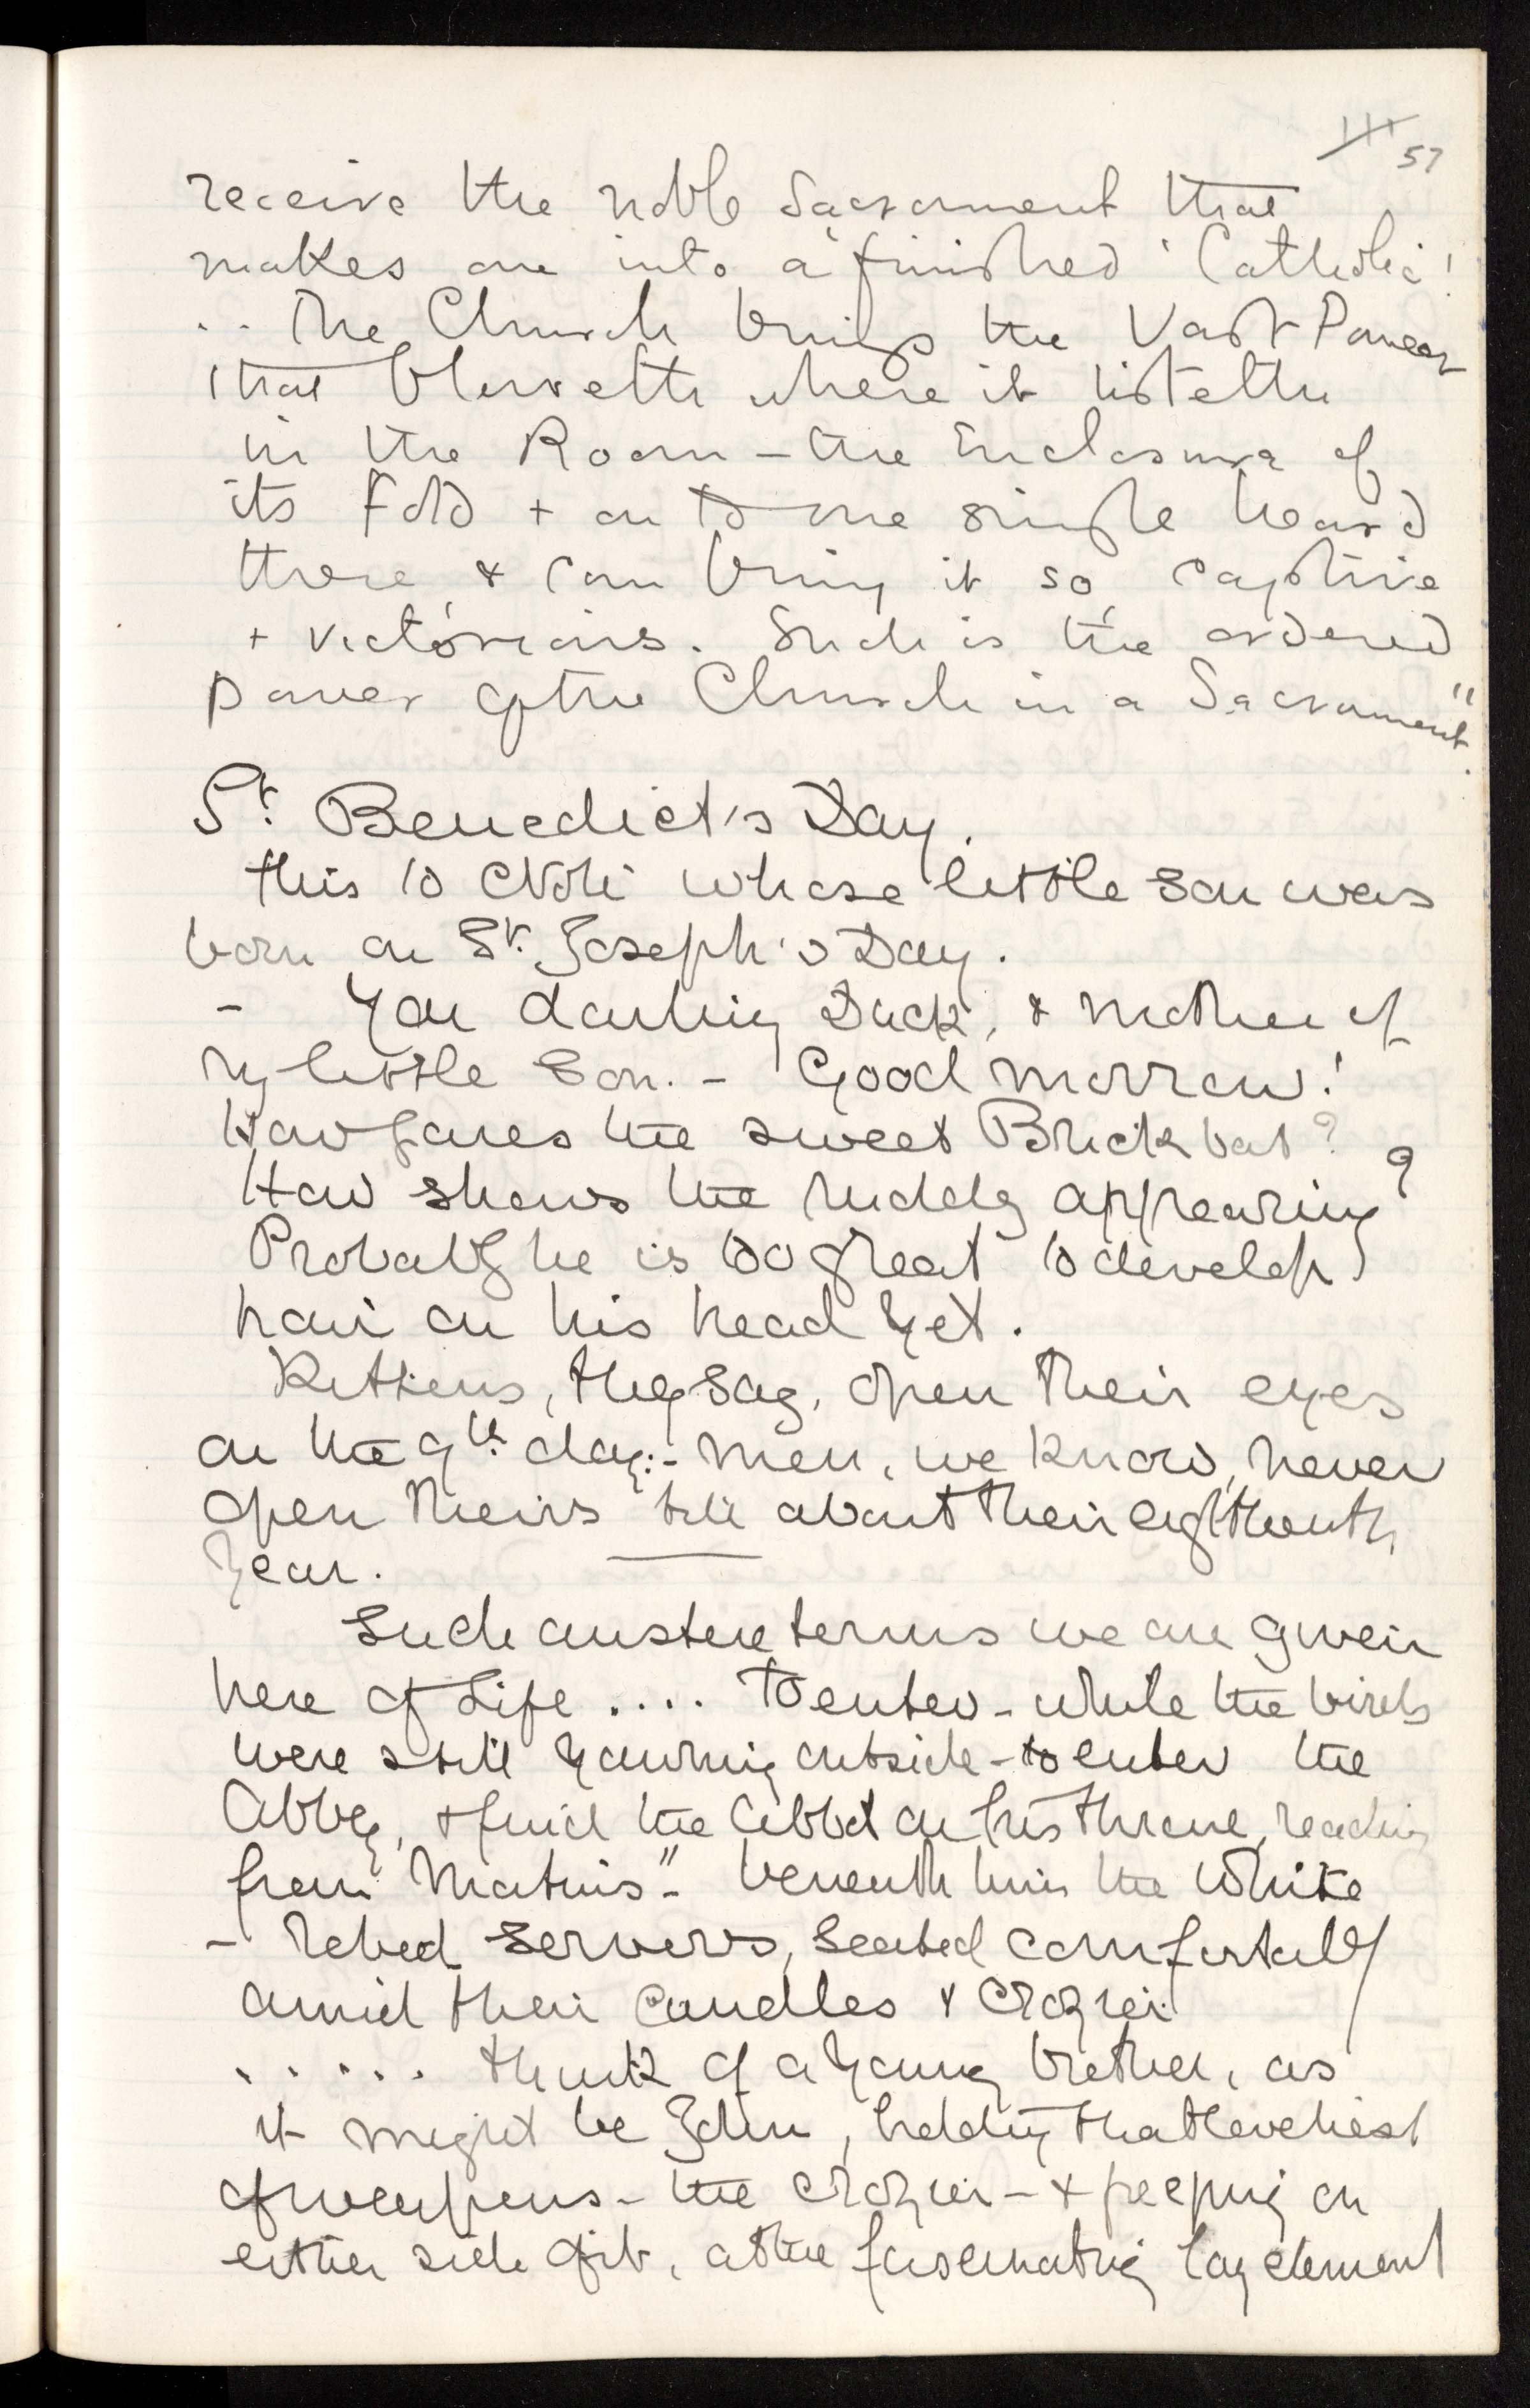 111 57
receive the noble Sacrament that
makes one into a 'finished' Catholic!
.. The Church brings the Vast Power
that bloweth where it listeth
in the Room – the Enclosure of
its Fold + on to one single heard
there & can bring it so captive
+ victorious. Such is the ordered
power of the Church in a Sacrament".
St. Benedict's Day.
this to Noli whose little son was
born on St. Joseph's Day.
– You darling Duck, & mother of
my little Son. – Good morrow!
How fares the sweet Brickbat?
How shows the ruddy appearing?
Probably he is too great to develop
hair on his head yet.
Kittens, they say, open their eyes
on the 9th day:- men, we know, never
open theirs till about their eightheenth
year.
Such austere terms we are given
here of Life .... To enter – while the birds
were still yawning outside – to enter the
Abbey, & find the Abbot on his throne, reading
from "Matins" – beneath him the White
– robed servers, seated comfortably
amid their Candles & Crozier
..... think of a young brother, as
it might be John, holding that loveliest
of weapons – the Crozier – & peeping on
either side of it, at the fascinating lay element